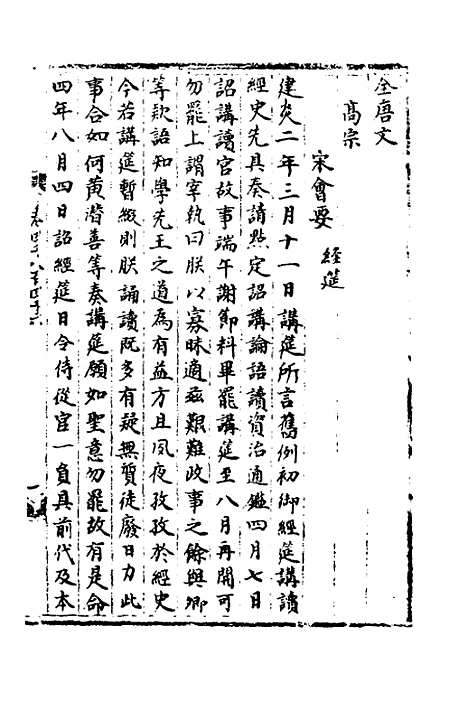 全唐文
高宗
宋會要 經筵
建炎二年三月十一日講筵所言舊例初御經筵講讀
經史先具奏請點定詔講論語讀資治通鑑四月七日
詔講讀官故事端午謝節料畢罷講筵至八月再開可
勿罷上謂宰執曰朕以寡昧適茲艱難政事之餘與卿
等欵語知學先王之道為有益方且夙夜孜孜於經史
今若講筵暫綴則朕誦讀既多有疑無質徒廢日力此
事合如何黃潛善等奏講筵願如聖意勿罷故有是命
四年八月四日詔經筵日令侍從官一負具前代及本